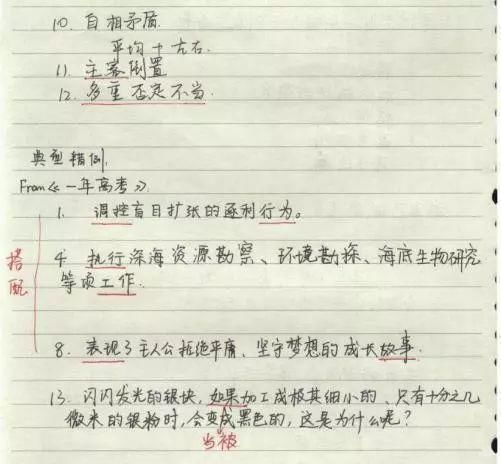 10. 自相矛盾
平均十左右.
11. 主客倒置
12. 多重否定不当.
典型错例.
From《一年高考》
1. 调控盲目扩张的逐利行为。
4. 执行深海资源勘察、环境勘探、海底生物研究
等项工作.
搭配
8. 表现了主人公拒绝平庸、坚守梦想的成长故事.
13. 闪闪发光的银块,如果加工成极其细小的、只有十分之几
微米的银粉时,会变成黑色的,这是为什么呢?
当被